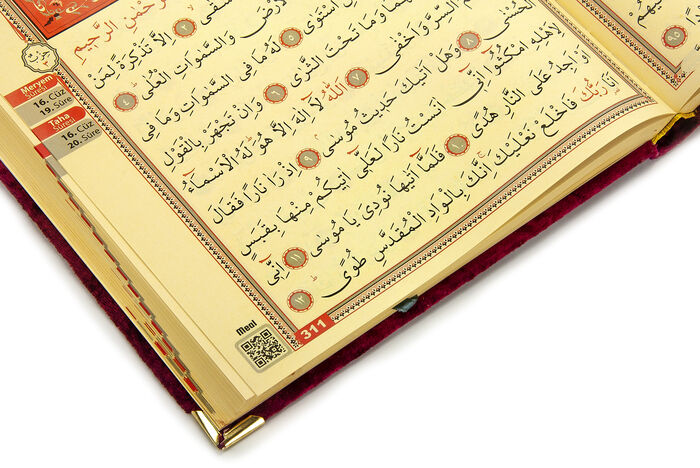 رَّحْمٰنِ الرَّحٖيمِ
شْقٰىۙ ٢ اِلَّا تَذْكِرَةً لِمَنْ
رْضَ وَالسَّمٰوَاتِ الْعُلٰىۜ ٤
اسْتَوٰى ٥ لَهُ مَا فِي السَّمٰوَاتِ وَمَا فِي
وَمَا تَحْتَ الثَّرٰى ٦ وَاِنْ تَجْهَرْ بِالْقَوْلِ
السِّرَّ وَاَخْفٰى ٧ اَللّٰهُ لَٓا اِلٰهَ اِلَّا هُوَۜ لَهُ الْاَسْمَٓاءُ
الْحُسْنٰى ٨ وَهَلْ اَتٰيكَ حَدٖيثُ مُوسٰىۢ ٩ اِذْ رَاٰ نَارًا فَقَالَ
لِاَهْلِهِ امْكُثُٓوا اِنّٖٓي اٰنَسْتُ نَارًا لَعَلّٖٓي اٰتٖيكُمْ مِنْهَا بِقَبَسٍ
اَوْ اَجِدُ عَلَى النَّارِ هُدًى ١٠ فَلَمَّٓا اَتٰيهَا نُودِيَ يَا مُوسٰىۜ ١١ اِنّٖٓي
اَنَا۬ رَبُّكَ فَاخْلَعْ نَعْلَيْكَۚ اِنَّكَ بِالْوَادِ الْمُقَدَّسِ طُوًىۜ ١٢
Meryem
Sûresi
16. Cüz
19. Sûre
Taha
Sûresi
16. Cüz
20. Sûre
Meal
311